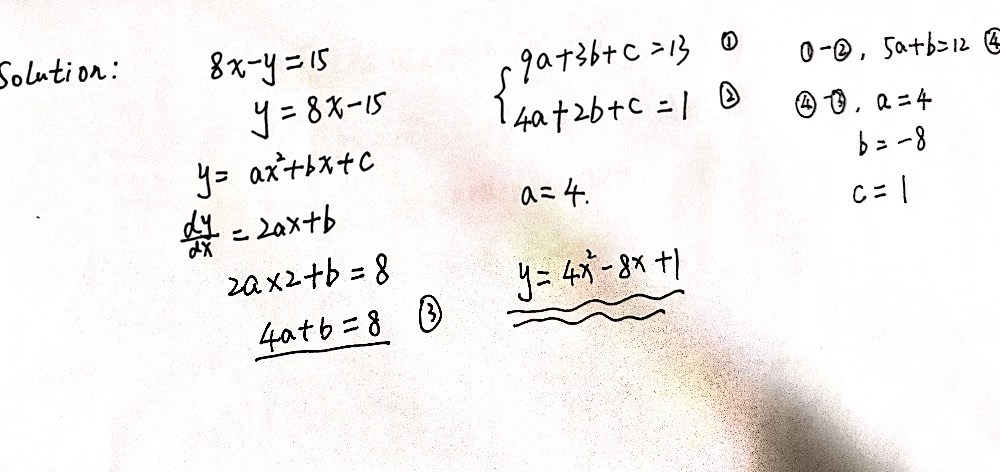 Solution:
8x-y=15
y=8x-15
y=ax²+bx+c
dy/dx=2ax+b
2a×2+b=8
4a+b=8 ③
9a+3b+c=13 ①
4a+2b+c=1 ②
a=4.
y=4x²-8x+1
①-②, 5a+b=12 ④
④-③, a=4
b=-8
c=1